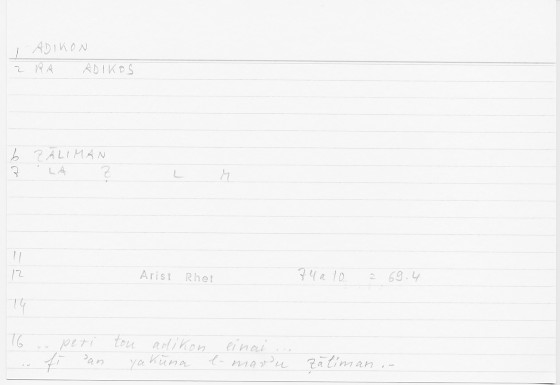 1 ADIKON
2 AA ADIKOS
6 ẒĀLIMAN
7 LA Ẓ L M
11
12 Arist Rhet 74a10 = 69.4
14
16 .. peri tou adikon einai ...
.. fī ʾan yakūna l-marʾu ẓāliman .-